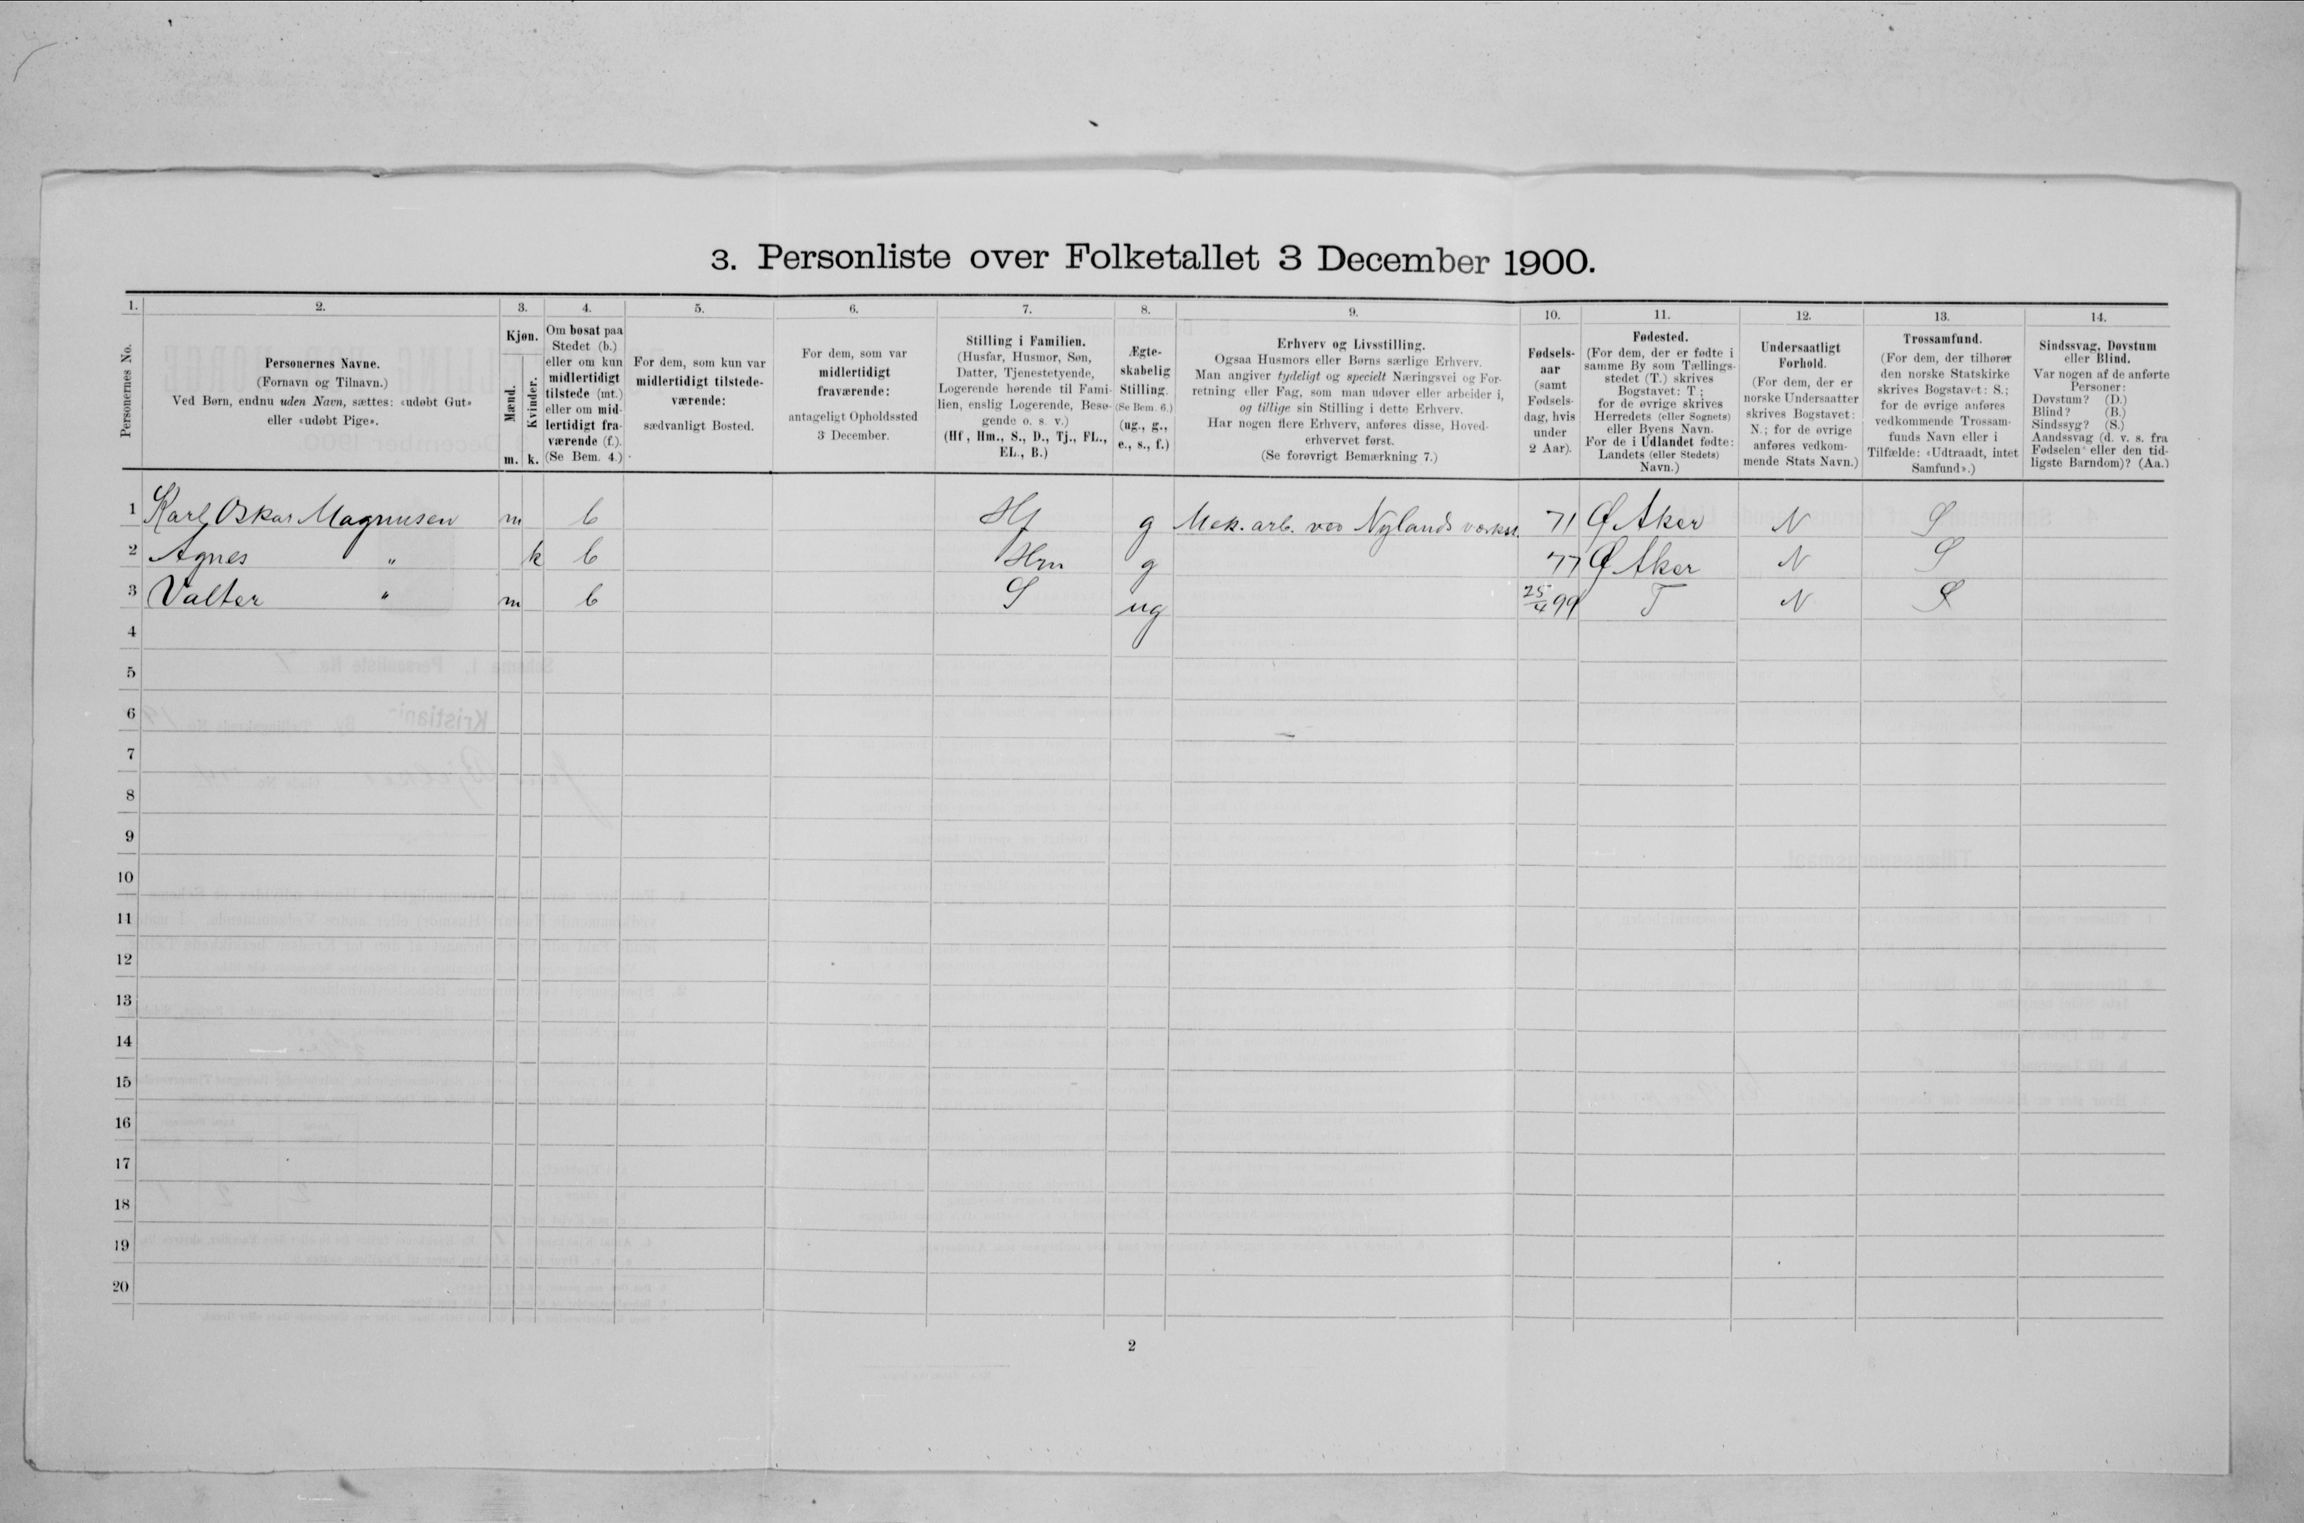 3. Personliste over Folketallet 3 December 1900.
1. 2. 3. 4. 5. 6. 7. 8. 9. 10. 11. 12. 13. 14.
Personernes No.
Personernes Navne.
(Fornavn og Tilnavn.)
Ved Børn, endnu uden Navn, sættes: «udøbt Gut»
eller «udøbt Pige».
Kjøn.
Mænd.
Kvinder.
m. k.
Om bosat paa
Stedet (b.)
eller om kun
midlertidigt
tilstede (mt.)
eller om mid-
lertidigt fra-
værende (f.).
(Se Bem. 4.)
For dem, som kun var
midlertidigt tilstede-
værende:
sædvanligt Bosted.
For dem, som var
midlertidigt
fraværende:
antageligt Opholdssted
3 December.
Stilling i Familien.
(Husfar, Husmor, Søn,
Datter, Tjenestetyende,
Logerende hørende til Fami-
lien, enslig Logerende, Besø-
gende o. s. v.)
(Hf, Hm., S., D., Tj., FL.,
EL., B.)
Ægte-
skabelig
Stilling.
(Se Bem. 6.)
(ug., g.,
e., s., f.)
Erhverv og Livsstilling.
Ogsaa Husmors eller Børns særlige Erhverv.
Man angiver tydeligt og specielt Næringsvei og For-
retning eller Fag, som man udøver eller arbeider i,
og tillige sin Stilling i dette Erhverv.
Har nogen flere Erhverv, anføres disse, Hoved-
erhvervet først.
(Se forøvrigt Bemærkning 7.)
Fødsels-
aar
(samt
Fødsels-
dag, hvis
under
2 Aar).
Fødested.
(For dem, der er fødte i
samme By som Tællings-
stedet (T.) skrives
Bogstavet: T;
for de øvrige skrives
Herredets (eller Sognets)
eller Byens Navn.
For de i Udlandet fødte:
Landets (eller Stedets)
Navn.)
Undersaatligt
Forhold.
(For dem, der er
norske Undersaatter
skrives Bogstavet:
N.; for de øvrige
anføres vedkom-
mende Stats Navn.)
Trossamfund.
(For dem, der tilhører
den norske Statskirke
skrives Bogstavet: S.;
for de øvrige anføres
vedkommende Trossam-
funds Navn eller i
Tilfælde: «Udtraadt, intet
Samfund».)
Sindssvag, Døvstum
eller Blind.
Var nogen af de anførte
Personer:
Døvstum? (D.)
Blind? (B.)
Sindssyg? (S.)
Aandssvag (d. v. s. fra
Fødselen eller den tid-
ligste Barndom)? (Aa.)
1 Karl Oskar Magnusen m b Hf g Mek. arb. ved Nylands værkst. 71 Ø Aker N S
2 Agnes " k b Hm g 77 Ø Aker N S
3 Valter " m b S ug 25/4 99 T N S
4
5
6
7
8
9
10
11
12
13
14
15
16
17
18
19
20
2